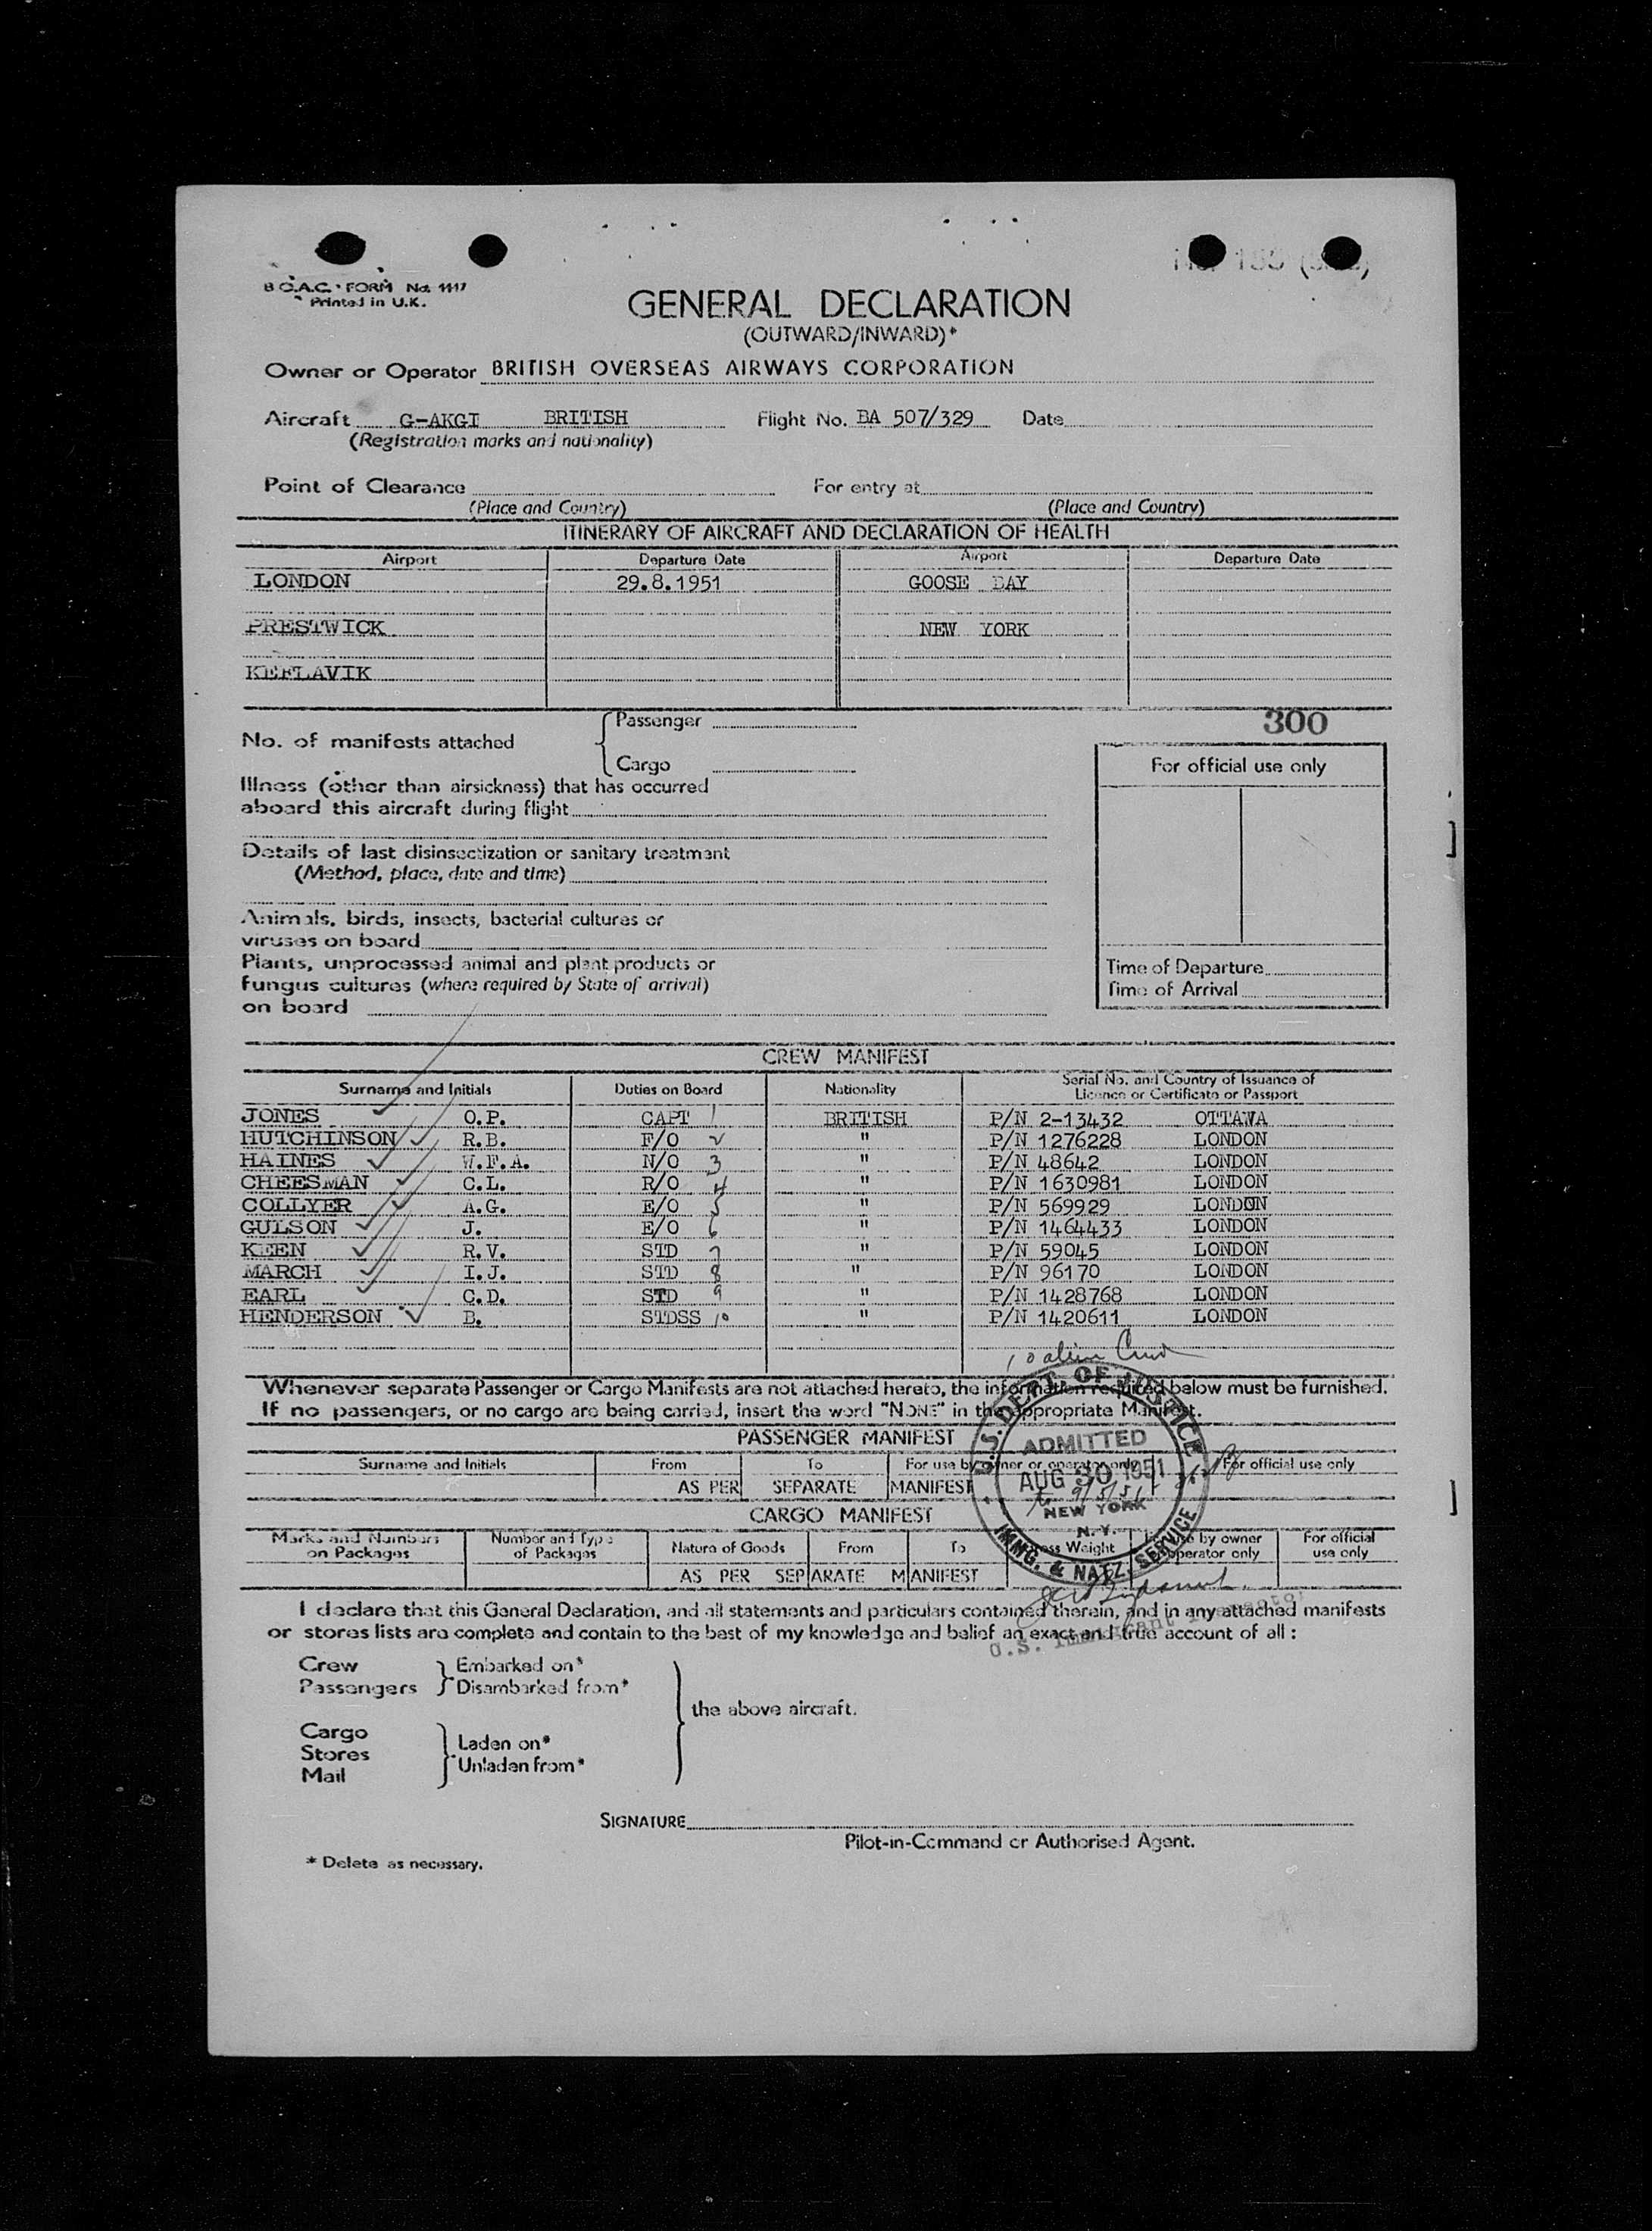 B.O.A.C. FORM No. 1117
Printed in U.K.
GENERAL DECLARATION
(OUTWARD/INWARD)*
Owner or Operator BRITISH OVERSEAS AIRWAYS CORPORATION
Aircraft G-AKGI BRITISH Flight No. BA 507/329 Date
(Registration marks and nationality)
Point of Clearance For entry at
(Place and Country) (Place and Country)
ITINERARY OF AIRCRAFT AND DECLARATION OF HEALTH
Airport Departure Date Airport Departure Date
LONDON 29.8.1951 GOOSE BAY
PRESTWICK NEW YORK
KEFLAVIK
300
No. of manifests attached { Passenger
Cargo
For official use only
Illness (other than airsickness) that has occurred
aboard this aircraft during flight
Details of last disinsectization or sanitary treatment
(Method, place, date and time)
Animals, birds, insects, bacterial cultures or
viruses on board
Plants, unprocessed animal and plant products or
fungus cultures (where required by State of arrival)
on board
Time of Departure
Time of Arrival
CREW MANIFEST
Surname and Initials Duties on Board Nationality Serial No. and Country of Issuance of
Licence or Certificate or Passport
JONES O.P. CAPT 1 BRITISH P/N 2-13432 OTTAWA
HUTCHINSON R.B. F/O 2 " P/N 1276228 LONDON
HAINES W.F.A. N/O 3 " P/N 48642 LONDON
CHEESMAN C.L. R/O 4 " P/N 1630981 LONDON
COLLYER A.G. E/O 5 " P/N 569929 LONDON
GULSON J. E/O 6 " P/N 1464433 LONDON
KEEN R.V. STD 7 " P/N 59045 LONDON
MARCH I.J. STD 8 " P/N 96170 LONDON
EARL C.D. STD 9 " P/N 1428768 LONDON
HENDERSON B. STDSS 10 " P/N 1420611 LONDON
Whenever separate Passenger or Cargo Manifests are not attached hereto, the information required below must be furnished.
If no passengers, or no cargo are being carried, insert the word "NONE" in the appropriate Manifest.
PASSENGER MANIFEST
Surname and Initials From To For use by owner or operator only For official use only
AS PER SEPARATE MANIFEST
U.S. DEPT. OF JUSTICE
ADMITTED
AUG 30 1951
NEW YORK
N.Y.
IMMG. & NATZ. SERVICE
CARGO MANIFEST
Marks and Numbers on Packages Number and Type of Packages Nature of Goods From To Gross Weight For use by owner or operator only For official use only
AS PER SEPARATE MANIFEST
I declare that this General Declaration, and all statements and particulars contained therein, and in any attached manifests
or stores lists are complete and contain to the best of my knowledge and belief an exact and true account of all :
U.S. Immigrant Inspector
Crew } Embarked on*
Passengers } Disembarked from*
the above aircraft.
Cargo
Stores } Laden on*
Mail } Unladen from*
SIGNATURE
Pilot-in-Command or Authorised Agent.
* Delete as necessary.